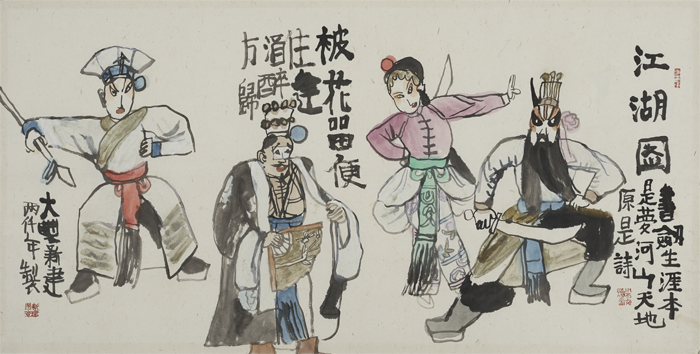 江湖圖
書劔生涯本
是夢河山天地
原是詩
被花留便
住逢
酒醉
方歸
大豐新建
丙戌年製